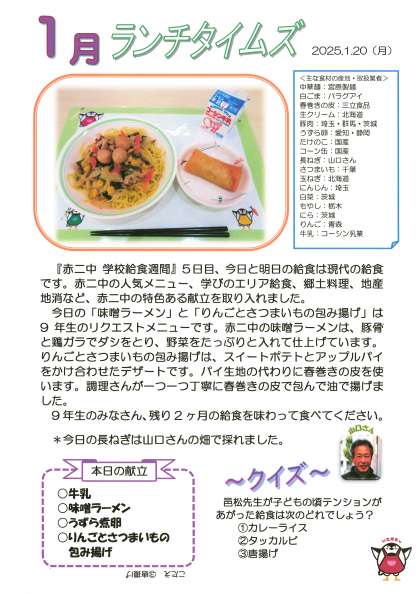 1月 ランチタイムズ
2025.1.20（月）
＜主な食材の産地・取扱業者＞
中華麺：宮原製麺
白ごま：パラグアイ
春巻きの皮：三立食品
生クリーム：北海道
豚肉：埼玉・群馬・茨城
うずら卵：愛知・静岡
たけのこ：国産
コーン缶：国産
長ねぎ：山口さん
さつまいも：千葉
玉ねぎ：北海道
にんじん：埼玉
白菜：茨城
もやし：栃木
にら：茨城
りんご：青森
牛乳：コーシン乳業
『赤二中 学校給食週間』５日目、今日と明日の給食は現代の給食
です。赤二中の人気メニュー、学びのエリア給食、郷土料理、地産
地消など、赤二中の特色ある献立を取り入れました。
今日の「味噌ラーメン」と「りんごとさつまいもの包み揚げ」は
９年生のリクエストメニューです。赤二中の味噌ラーメンは、豚骨
と鶏ガラでダシをとり、野菜をたっぷりと入れて仕上げています。
りんごとさつまいもの包み揚げは、スイートポテトとアップルパイ
をかけ合わせたデザートです。パイ生地の代わりに春巻きの皮を使
います。調理さんが一つ一つ丁寧に春巻きの皮で包んで油で揚げま
した。
９年生のみなさん、残り２ヶ月の給食を味わって食べてください。
＊今日の長ねぎは山口さんの畑で採れました。
山口さん
本日の献立
○牛乳
○味噌ラーメン
○うずら煮卵
○りんごとさつまいもの
包み揚げ
～クイズ～
邑松先生が子どもの頃テンションが
あがった給食は次のどれでしょう？
①カレーライス
②タッカルビ
③唐揚げ
こたえ ③唐揚げ